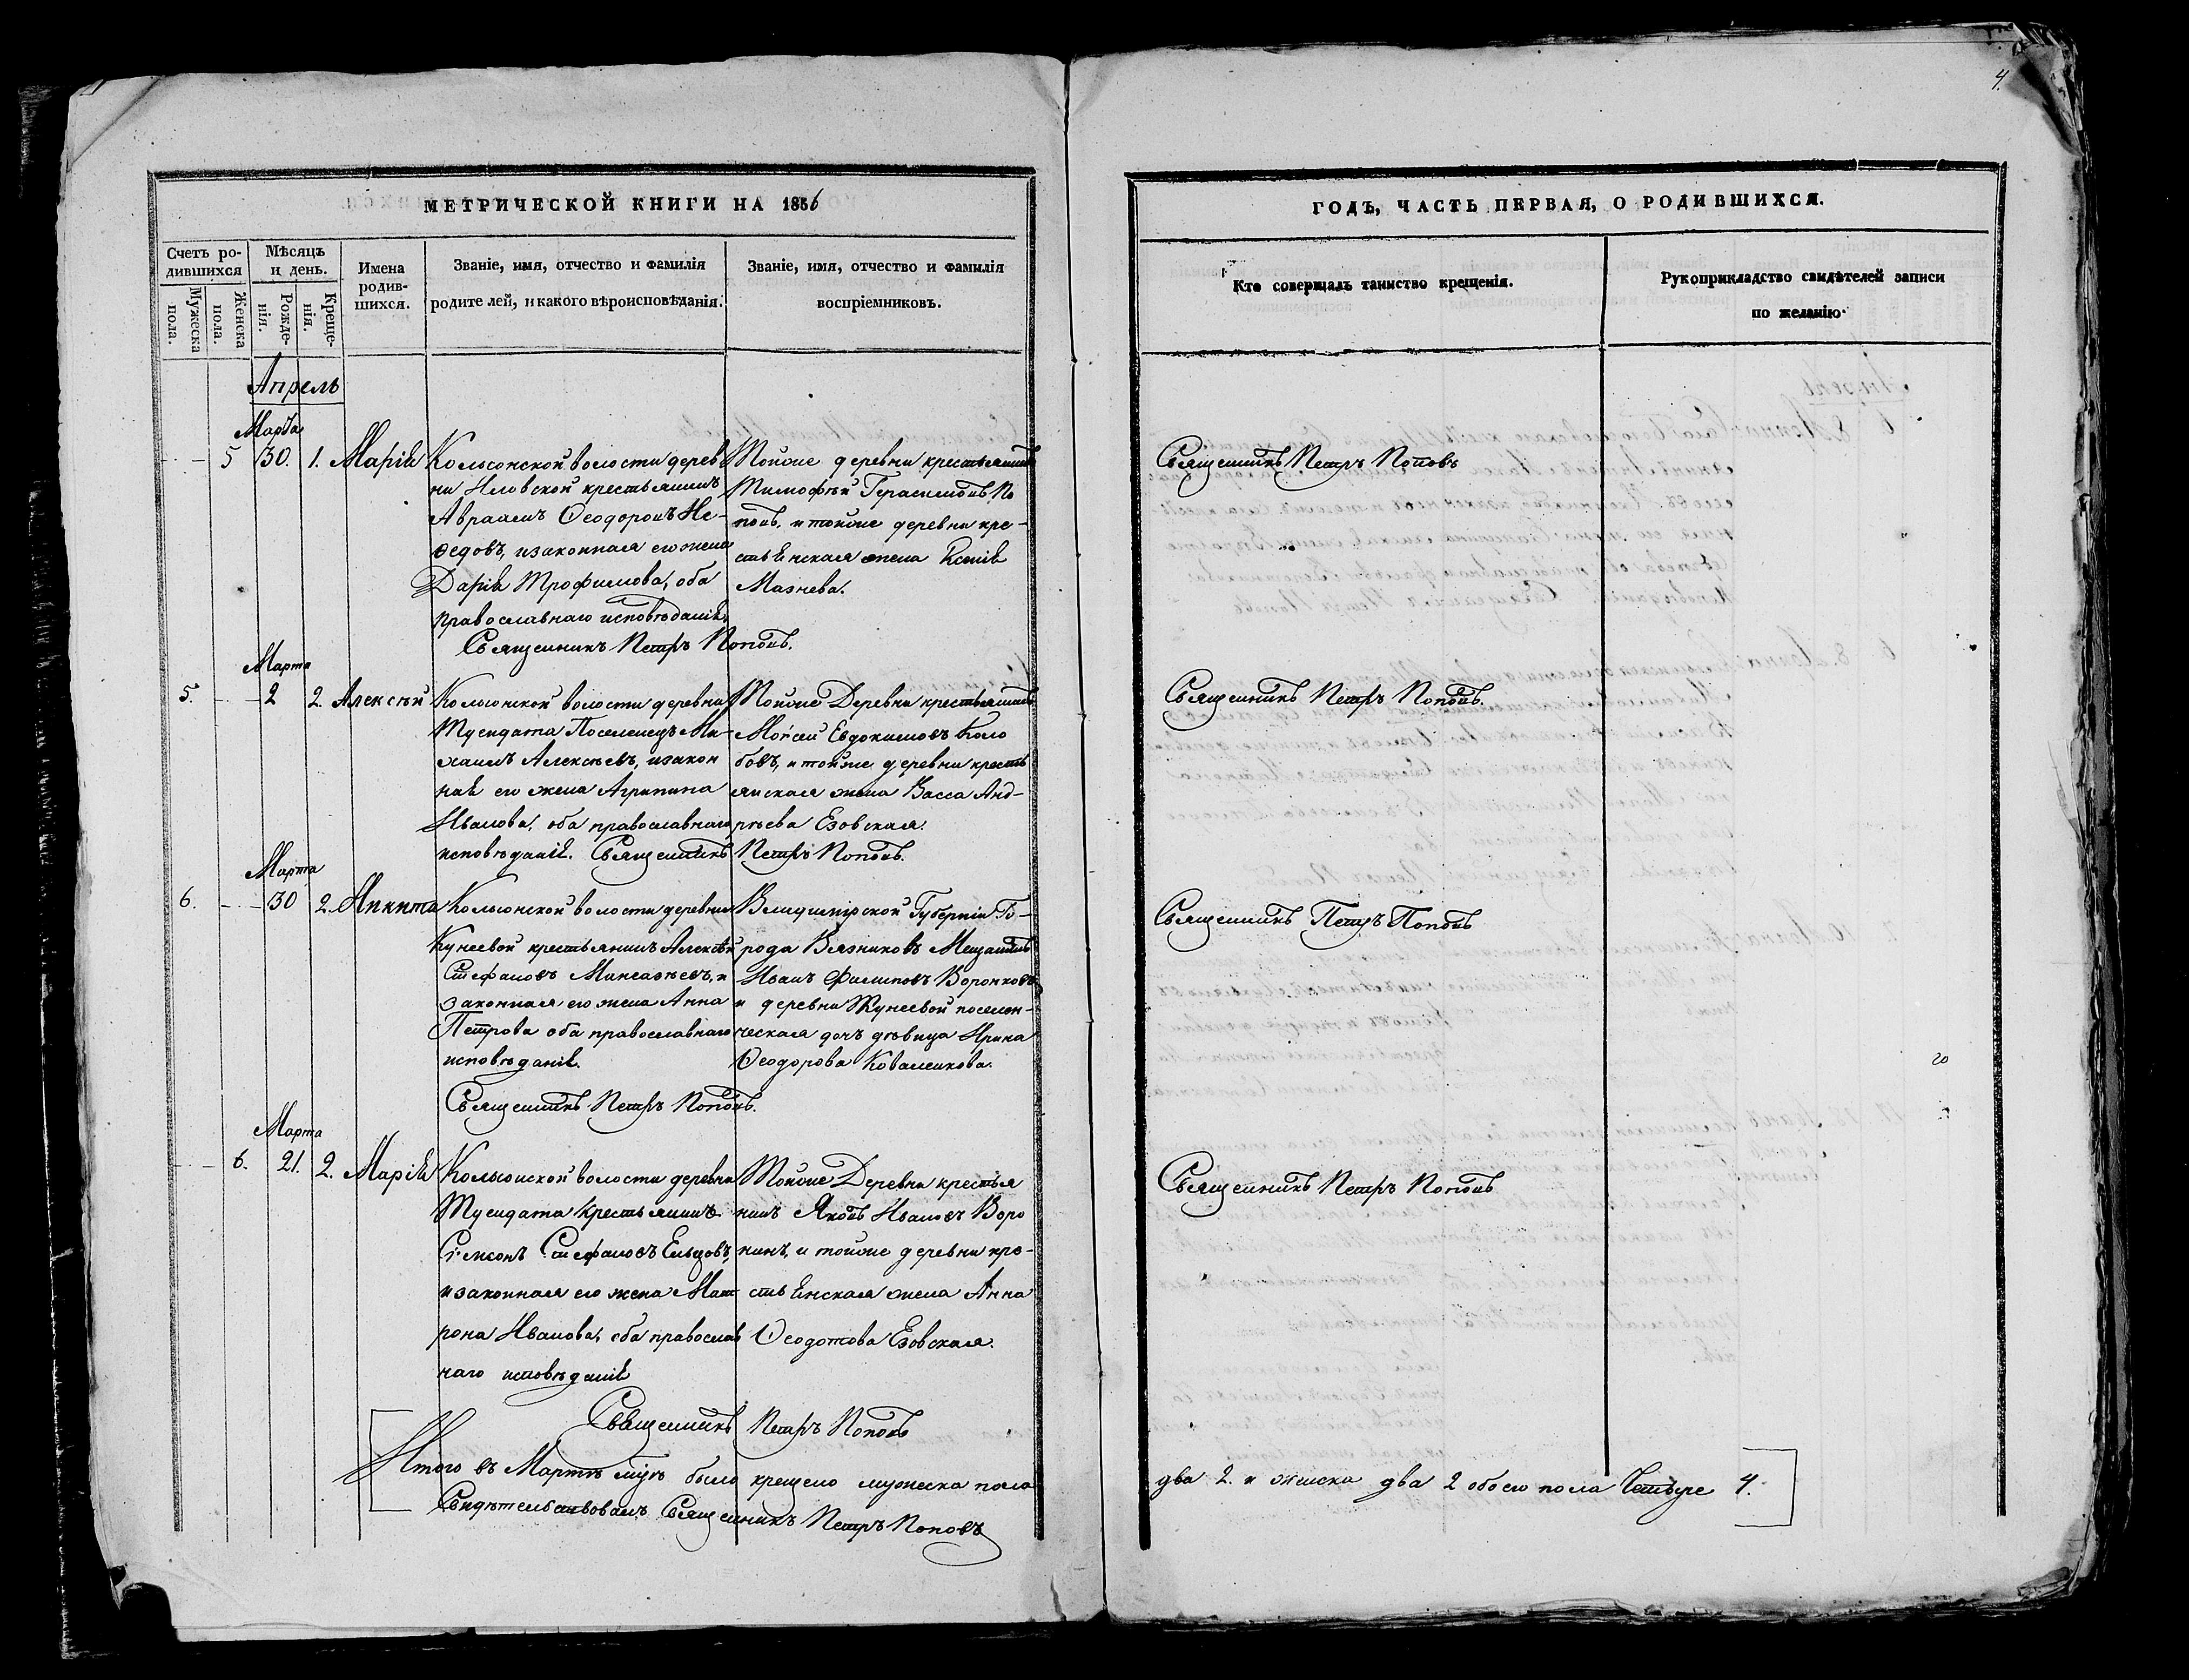 4.
МЕТРИЧЕСКОЙ КНИГИ НА 1856
Счетъ родившихся
Мужеска пола.
Женска пола.
Мѣсяцъ и день.
Рожденія.
Крещенія.
Имена родившихся.
Званіе, имя, отчество и фамилія родителей, и какого вѣроисповѣданія.
Званіе, имя, отчество и фамилія воспріемниковъ.
Апрель
Марта
5 30. 1. Марія
Кольонской волости дерев
ни Иловской крестьянинъ
Авраамъ Ѳеодоровъ Не-
ѳедовъ, и законная его жена
Дарія Трофимова, оба
православнаго исповѣданія.
Тойже деревни крестьянинъ
Тимофѣй Герасимовъ По
повъ, и тойже деревни кре-
стьянская жена Ксенія
Мазнева.
Священникъ Петръ Поповъ.
Марта
5. 2 2. Алексѣй
Кольонской волости деревни
Тусидата Поселенецъ Ми-
хаилъ Алексѣевъ, и закон
ная его жена Агрипина
Иванова, оба православнаго
исповѣданія. Священникъ Петръ Поповъ.
Тойже Деревни крестьянинъ
Моѵсей Евдокимовъ Коло
бовъ, и тойже деревни кресть
янская жена Васса Анд-
рѣева Езовская.
Марта
6. 30 2. Никита
Кольонской волости деревни
Кунеевой крестьянинъ Алексѣй
Стефановъ , и
законная его жена Анна
Петрова оба православнаго
исповѣданія.
Владимірской Губерніи Го-
рода Вязниковъ Мещанинъ
Иванъ Филиповъ Воронковъ
и деревни Кунеевой поселен-
ческая дочь дѣвица Ирина
Ѳеодорова Коваленкова.
Священникъ Петръ Поповъ.
Марта
6. 21. 2. Марія
Кольонской волости деревни
Тусидата крестьянинъ
Сѵмеонъ Стефановъ Ельцовъ,
и законная его жена Мат
рона Иванова, оба православ
наго исповѣданія
Тойже Деревни крестья
нинъ Яковъ Ивановъ Воро
нинъ, и тойже деревни кре-
стьянская жена Анна
Ѳеодотова Езовская.
Священникъ Петръ Поповъ
Итого въ Мартѣ мцѣ было крещено мужеска пола
Свидѣтельствовалъ Священникъ Петръ Поповъ
ГОДЪ, ЧАСТЬ ПЕРВАЯ, О РОДИВШИХСЯ.
Кто совершалъ таинство крещенія.
Рукоприкладство свидѣтелей записи по желанію.
Священникъ Петръ Поповъ
Священникъ Петръ Поповъ.
Священникъ Петръ Поповъ
Священникъ Петръ Поповъ
два 2. и женска два 2 обоего пола Четыре 4.